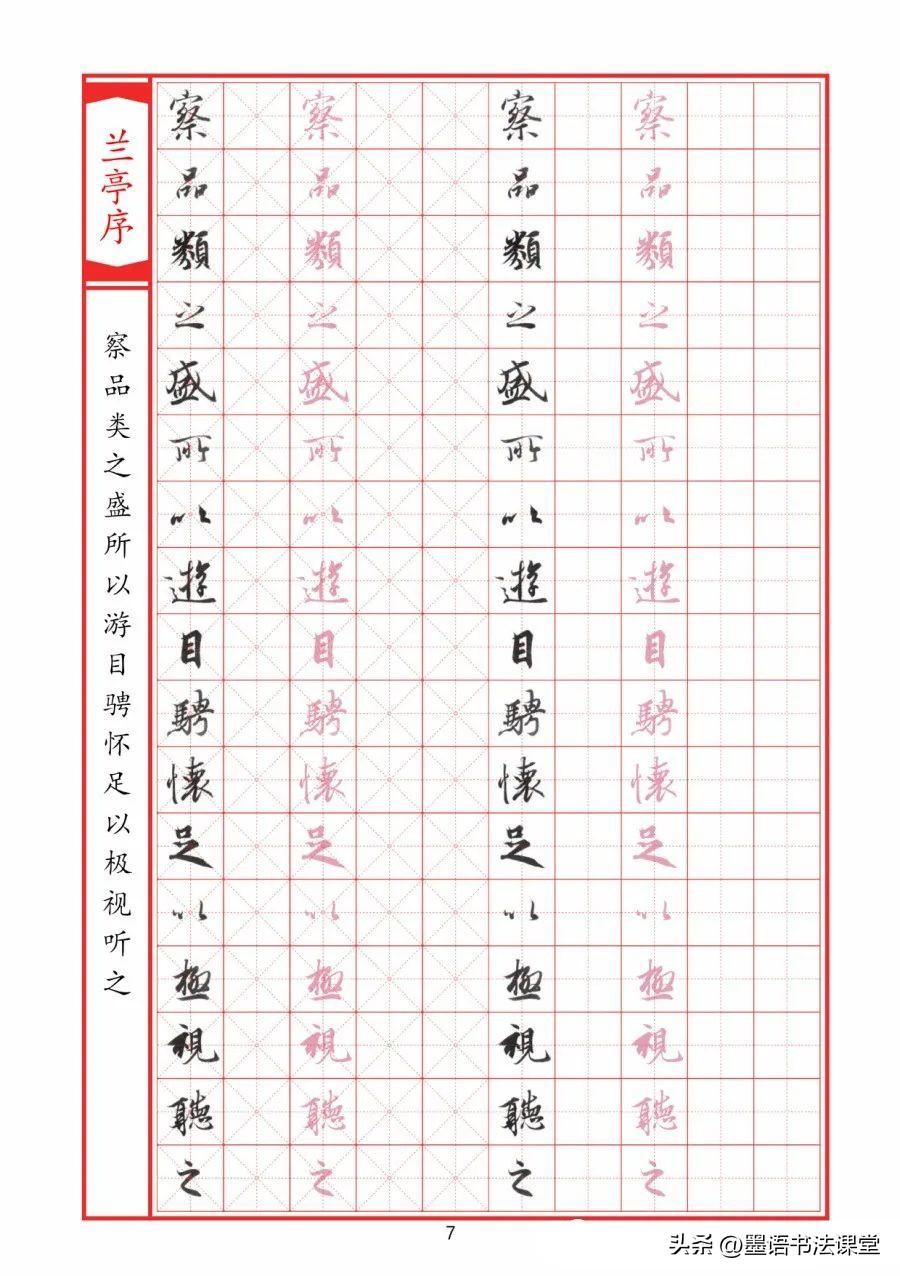 兰亭序
察品类之盛所以游目骋怀足以极视听之
察品類之盛所以遊目騁懷足以極視聽之
察品類之盛所以遊目騁懷足以極視聽之
察品類之盛所以遊目騁懷足以極視聽之
察品類之盛所以遊目騁懷足以極視聽之
7
头条 @墨语书法课堂